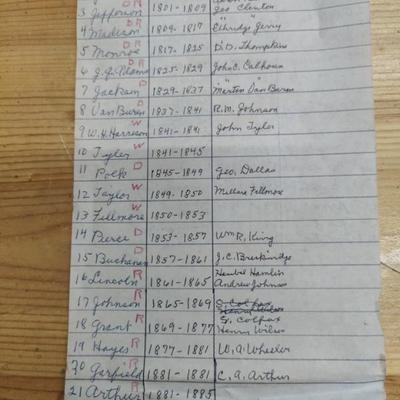 3 Jefferson DR 1801-1809 Geo Clinton
4 Madison DR 1809-1817 " Elbridge Gerry
5 Monroe DR 1817-1825 D.D. Thompkins
6 J.Q. Adams DR 1825-1829 John C. Calhoun
7 Jackson D 1829-1837 " Marten Van Buren
8 Van Buren D 1837-1841 R.M. Johnson
9 W.H. Harrison W 1841-1841 John Tyler
10 Tyler W 1841-1845
11 Polk D 1845-1849 Geo. Dallas
12 Taylor W 1849-1850 Millard Fillmore
13 Fillmore W 1850-1853
14 Pierce D 1853-1857 Wm R. King
15 Buchanan D 1857-1861 J.C. Breckindge
16 Lincoln R 1861-1865 Hanibel Hamlin
Andrew Johnson
17 Johnson R 1865-1869 S Colfax
18 Grant R 1869-1877 S. Colfax
Henry Wilson
19 Hayes R 1877-1881 W.A. Wheeler
20 Garfield R 1881-1881 C.A. Arthur
21 Arthur R 1881-1885